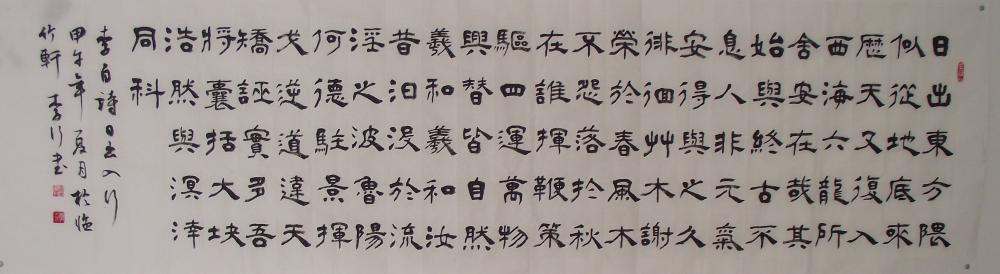 日出東方隈
似從地底來
歷天又復入
西海六龍所
舍安在哉其
始與終古不
息人非元氣
安得與之久
徘徊艸木謝
榮於春風木
不怨落扵秋
在誰揮鞭策
驅四運萬物
興替皆自然
羲和羲和汝
昔汩没於流
淫之波魯陽
何德駐景揮
戈逆道違天
矯誣實多吾
將囊括大块
浩然與溟涬
同科
李白詩日出入行
甲午年夏月於临
竹軒 李行书